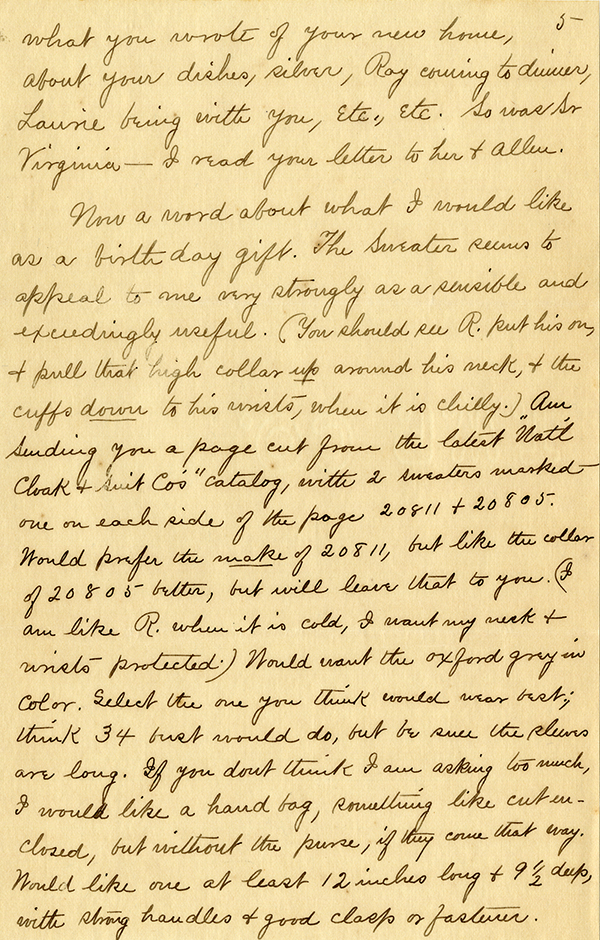 5
what you wrote of your new home,
about your dishes, silver, Ray coming to dinner,
Laurie being with you, Etc., Etc. So was Sr
Virginia — I read your letter to her & Allen.
Now a word about what I would like
as a birthday gift. The Sweater seems to
appeal to me very strongly as a sensible and
exceedingly useful. (You should see R. put his on,
& pull that high collar up around his neck, & the
cuffs down to his wrists, when it is chilly.) Am
sending you a page cut from the latest "Nat'l
Cloak & Suit Co's" catalog, with 2 sweaters marked
one on each side of the page 20811 & 20805.
Would prefer the make of 20811, but like the collar
of 20805 better, but will leave that to you. (I
am like R. when it is cold, I want my neck &
wrists protected.) Would want the oxford grey in
color. Select the one you think would wear best;
think 34 bust would do, but be sure the sleeves
are long. If you dont think I am asking too much,
I would like a hand bag, something like cut en-
closed, but without the purse, if they come that way.
Would like one at least 12 inches long & 9 1/2 deep,
with strong handles & good clasp or fastener.